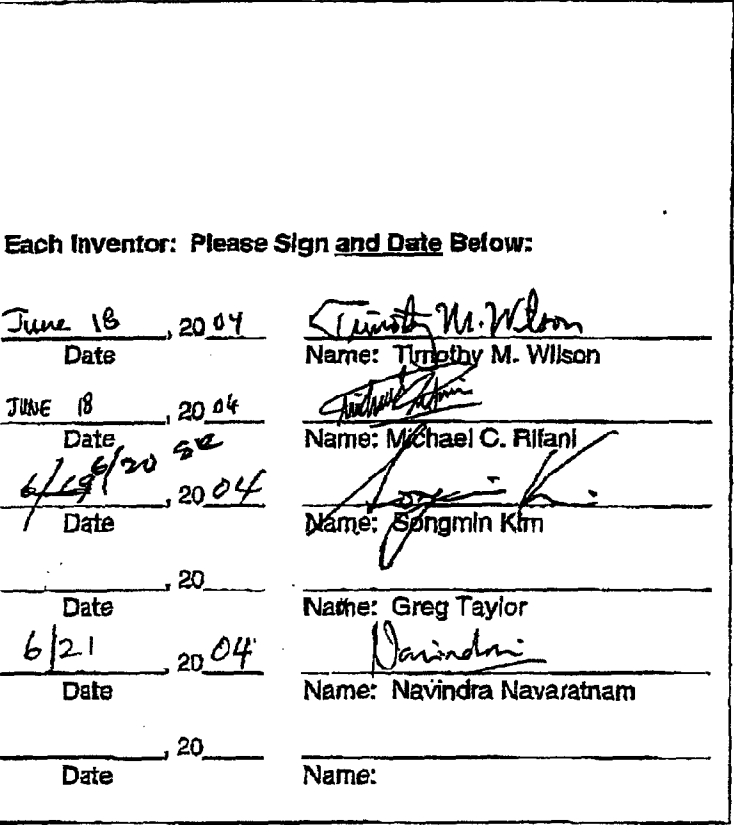 Each Inventor: Please Sign and Date Below:
June 18, 2004 Timothy M. Wilson
Date Name: Timothy M. Wilson
JUNE 18, 2004
Date Name: Michael C. Rifani
6/20 SK
6/19, 2004 Songmin Kim
Date Name: Songmin Kim
, 20
Date Name: Greg Taylor
6/21, 2004 Navindra
Date Name: Navindra Navaratnam
, 20
Date Name: